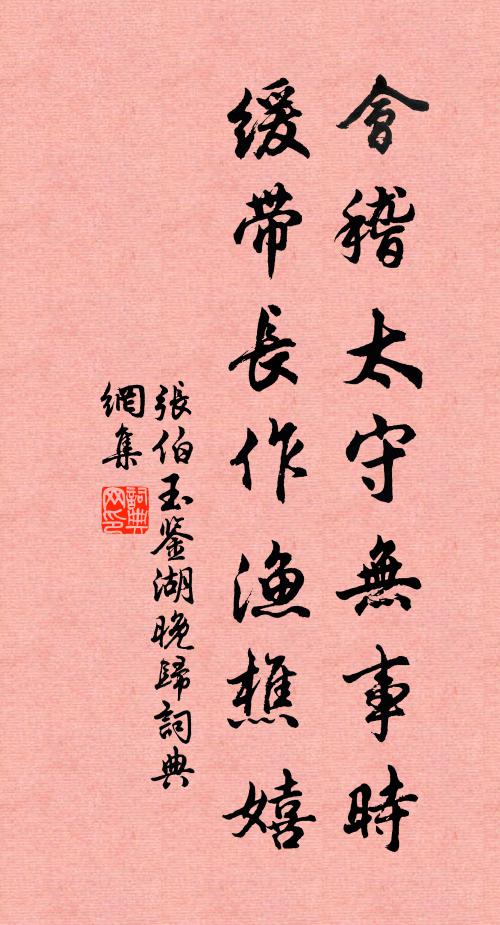 會稽太守無事時
緩带長作漁樵嬉
張伯玉鉴湖晚歸詞典
網集
詞典网印